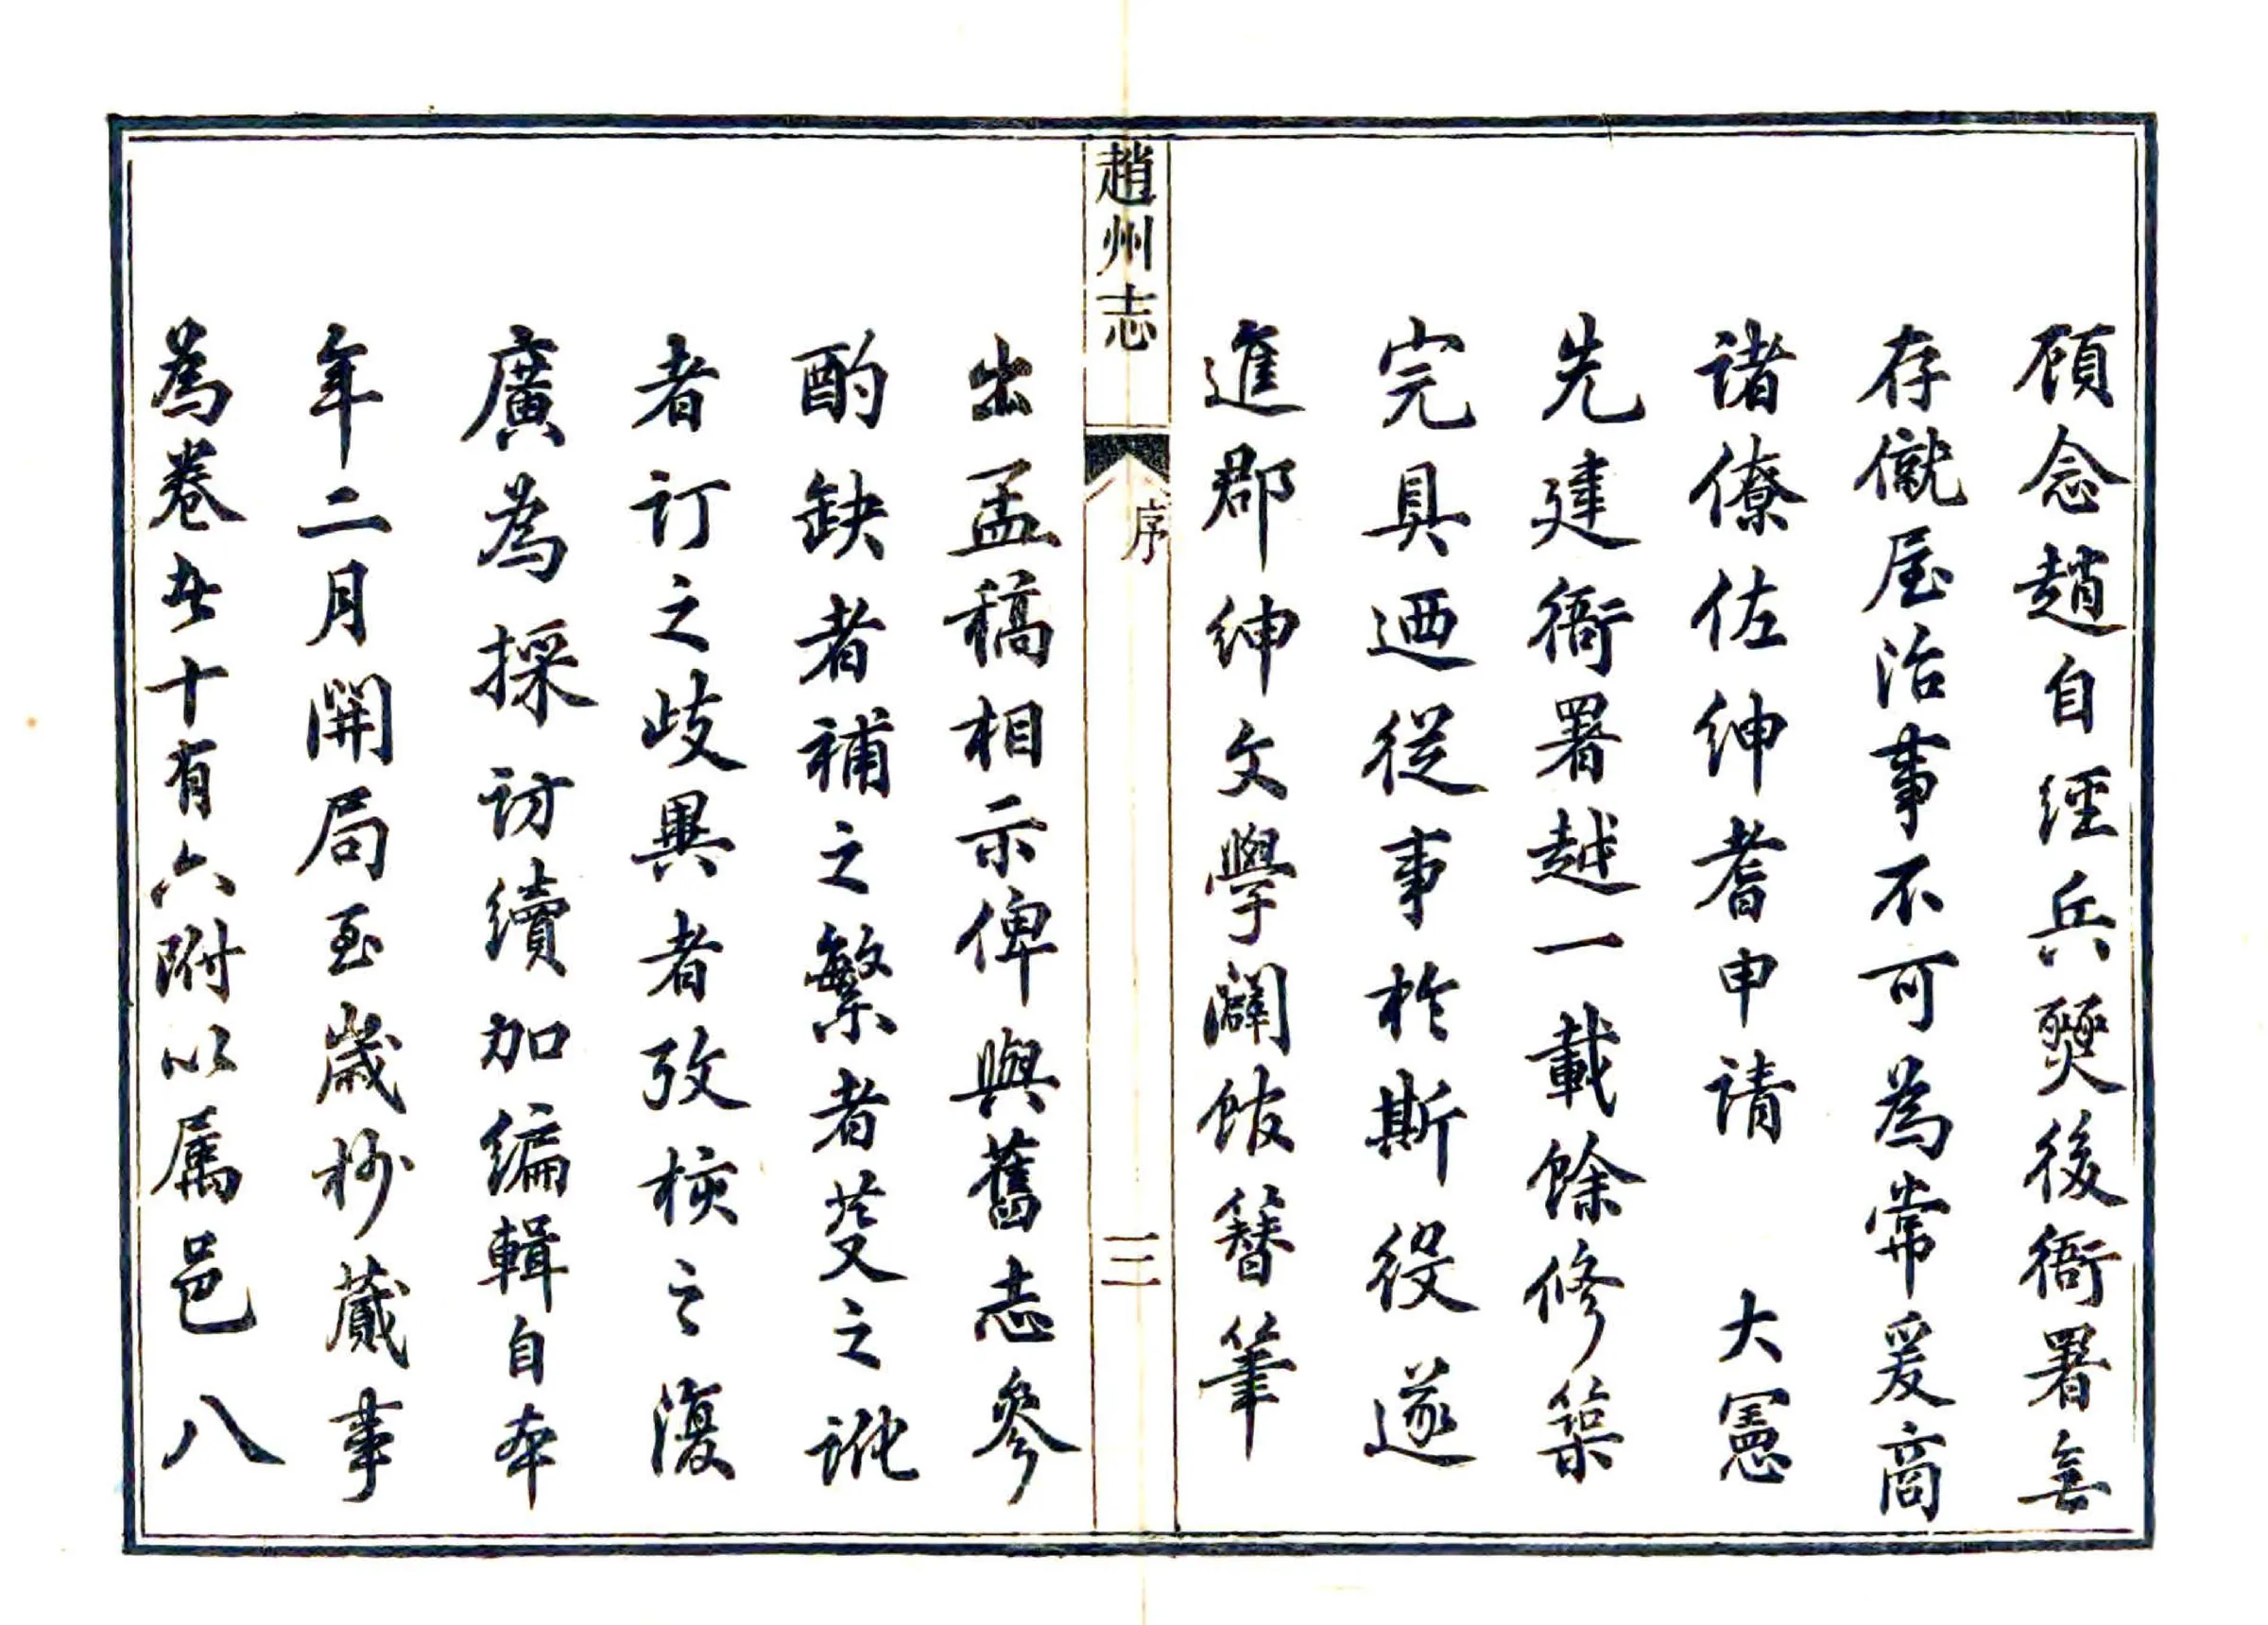 顧念趙自經兵燹後衙署無
存僦屋治事不可為常爰商
諸僚佐紳耆申請　大憲
先建衙署越一載餘修築
完具迺從事於斯役遂
進郡紳文學闢館簪筆
趙州志
序
三
出孟稿相示俾與舊志參
酌缺者補之繁者芟之訛
者訂之歧異者攷核之復
廣為採訪續加編輯自本
年二月開局至歲杪蕆事
為卷者十有六附以属邑八